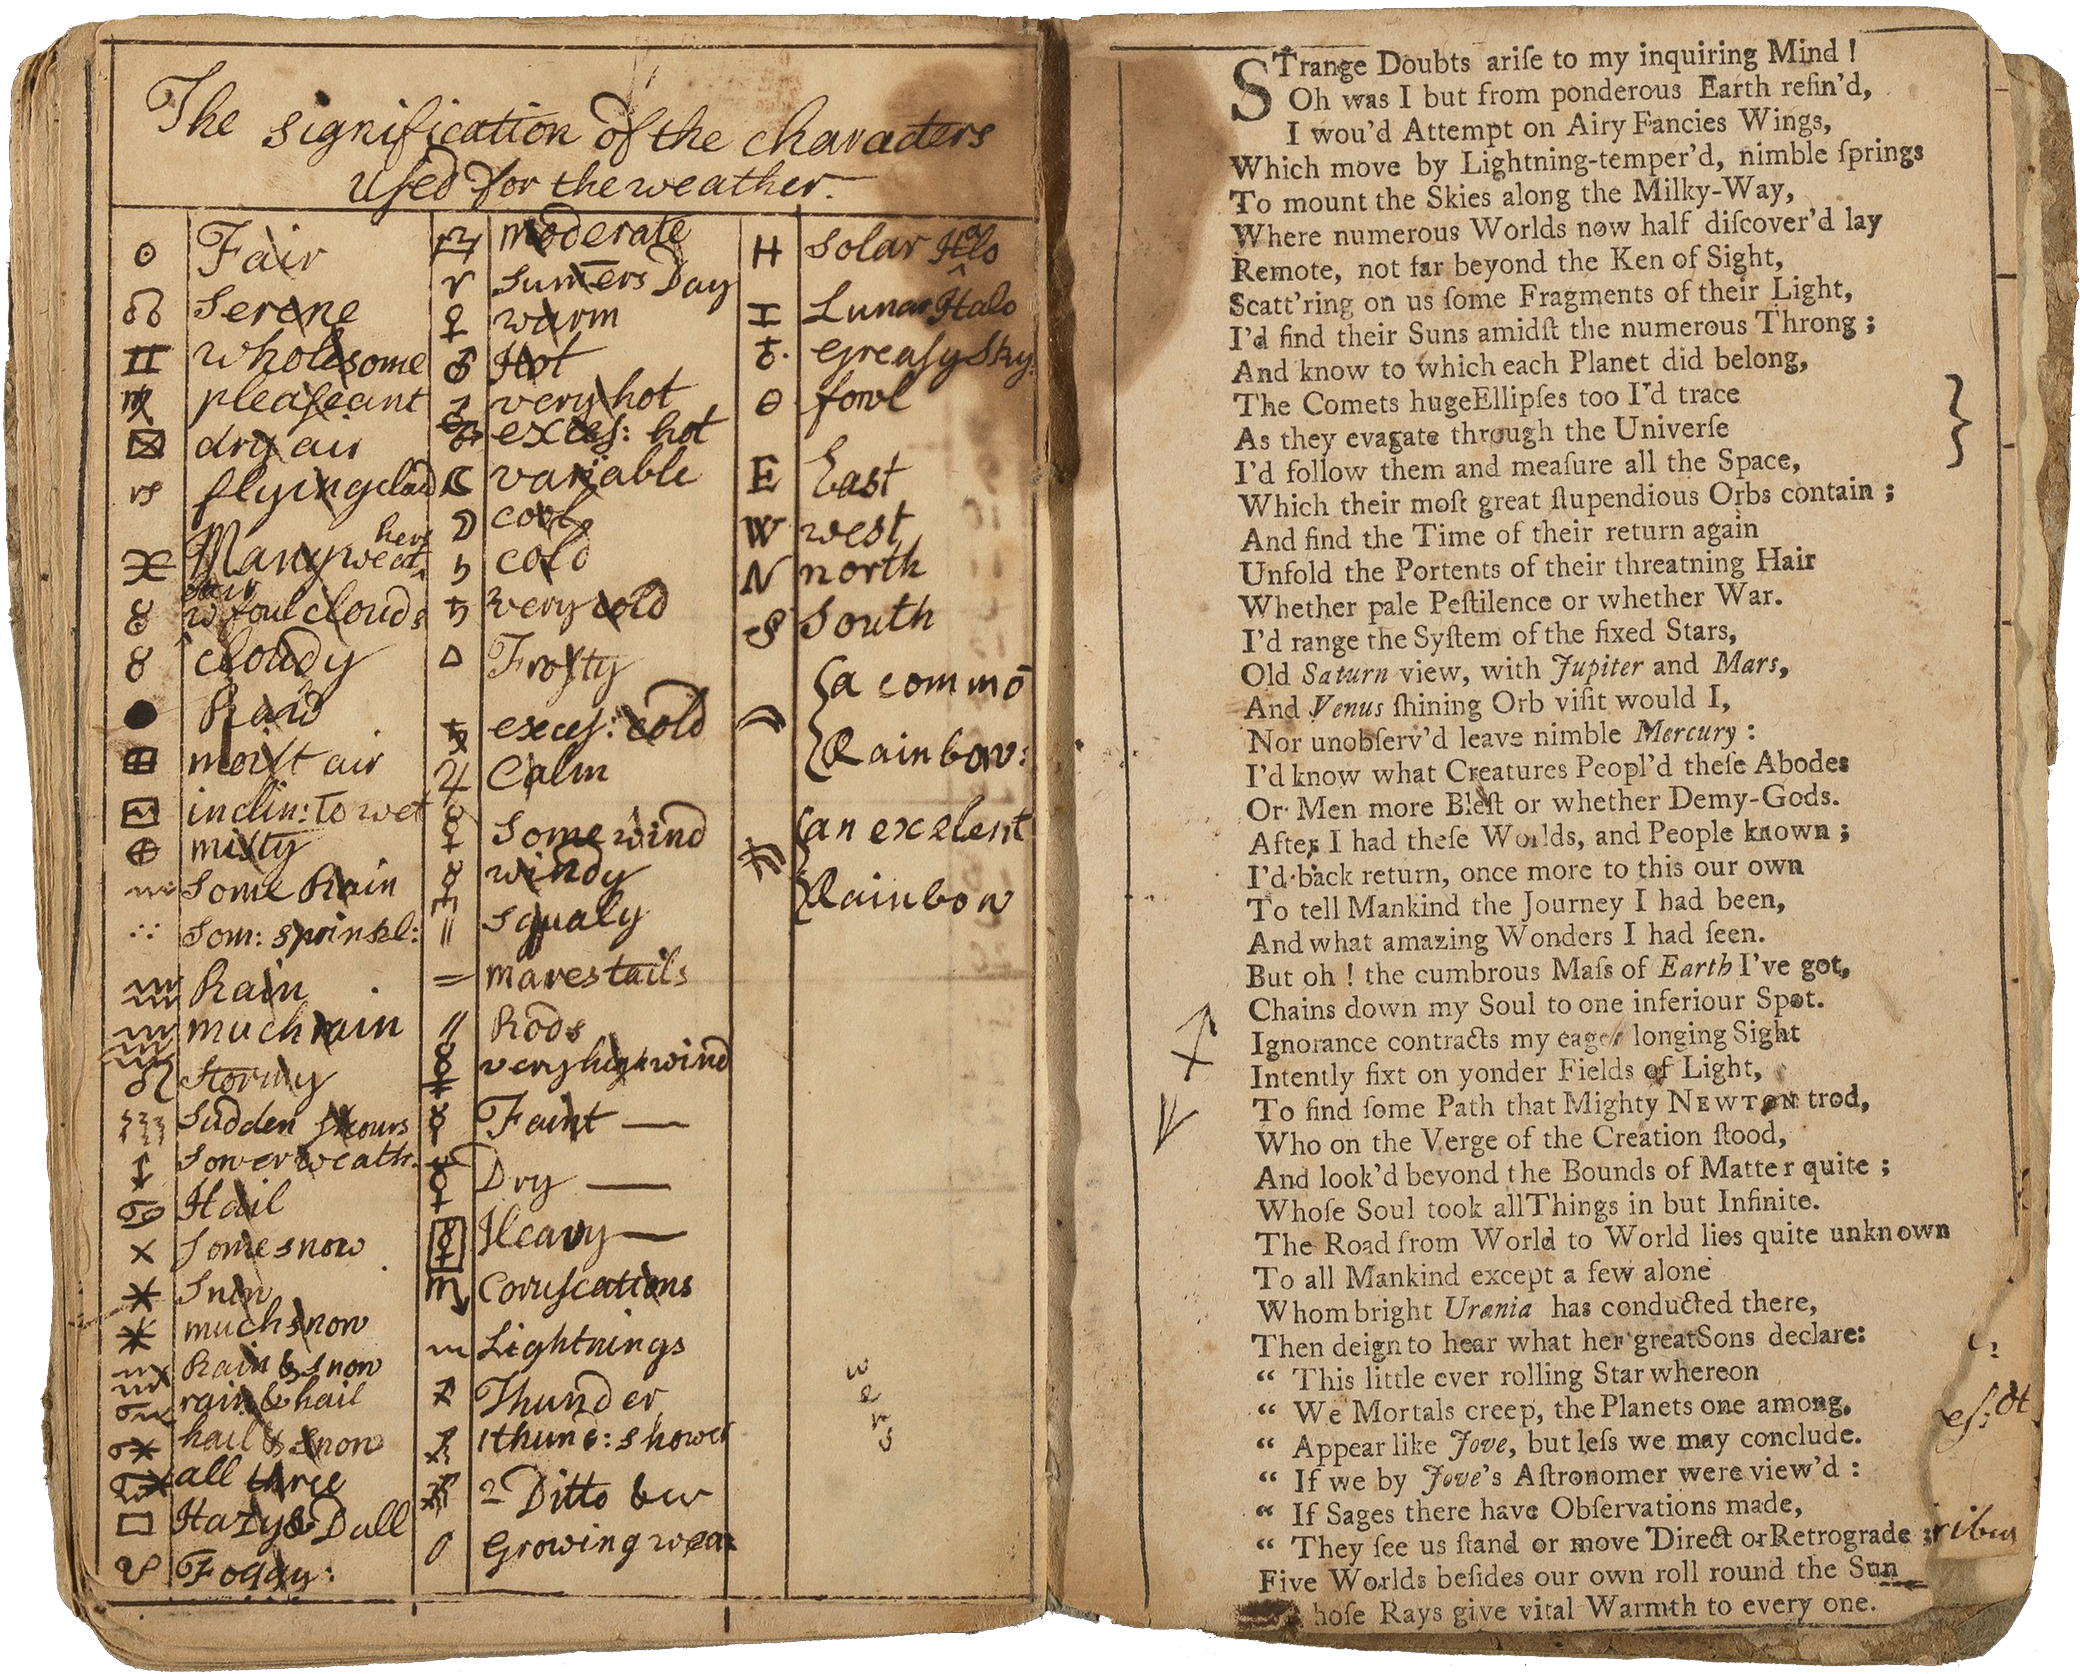 The signification of the characters
used for the weather.
Fair
Serene
wholesome
pleaseant
dry air
flying cloud
Many weat,
hers
w foul clouds
cloudy
moist air
inclin: to wet
misty
Some Rain
Som: sprinkl:
Rain
much rain
Stormy
Sudden showrs
Sower weath.
Hail
Some snow
Snow
much snow
Rain & snow
rain & hail
hail & snow
all three
Hazy & Dull
Foggy:
moderate
Sum̄ers Day
warm
Hot
very hot
exces: hot
variable
cool
cold
very cold
Frosty
exces: cold
Calm
Some wind
windy
Squaly
marestails
Rods
very high wind
Faint —
Dry —
Heavy —
Coruscations
Lightnings
Thunder
1 thund: shower
2 Ditto &c
Growing wea
H Solar Halo
Lunar Halo
Greasy Sky.
fowl
E East
W west
N north
S South
a commō
Rainbow:
an exelent
Rainbow
w
e
r
s
STrange Doubts ariſe to my inquiring Mind !
Oh was I but from ponderous Earth refin'd,
I wou'd Attempt on Airy Fancies Wings,
Which move by Lightning-temper'd, nimble ſprings
To mount the Skies along the Milky-Way,
Where numerous Worlds now half diſcover'd lay
Remote, not far beyond the Ken of Sight,
Scatt'ring on us ſome Fragments of their Light,
I'd find their Suns amidſt the numerous Throng ;
And know to which each Planet did belong,
The Comets huge Ellipſes too I'd trace
As they evagate through the Univerſe
I'd follow them and meaſure all the Space,
Which their moſt great ſtupendious Orbs contain ;
And find the Time of their return again
Unfold the Portents of their threatning Hair
Whether pale Peſtilence or whether War.
I'd range the Syſtem of the fixed Stars,
Old Saturn view, with Jupiter and Mars,
And Venus ſhining Orb viſit would I,
Nor unobſerv'd leave nimble Mercury :
I'd know what Creatures Peopl'd theſe Abodes
Or Men more Bleſt or whether Demy-Gods.
After I had theſe Worlds, and People known ;
I'd back return, once more to this our own
To tell Mankind the Journey I had been,
And what amazing Wonders I had ſeen.
But oh ! the cumbrous Maſs of Earth I've got,
Chains down my Soul to one inferiour Spot.
Ignorance contracts my eager longing Sight
Intently fixt on yonder Fields of Light,
To find ſome Path that Mighty NEWTON trod,
Who on the Verge of the Creation ſtood,
And look'd beyond the Bounds of Matter quite ;
Whoſe Soul took all Things in but Infinite.
The Road from World to World lies quite unknown
To all Mankind except a few alone
Whom bright Urania has conducted there,
Then deign to hear what her great Sons declare:
“ This little ever rolling Star whereon
“ We Mortals creep, the Planets one among,
“ Appear like Jove, but leſs we may conclude.
“ If we by Jove's Aſtronomer were view'd :
“ If Sages there have Obſervations made,
“ They ſee us ſtand or move Direct or Retrograde ;
Five Worlds beſides our own roll round the Sun
hoſe Rays give vital Warmth to every one.